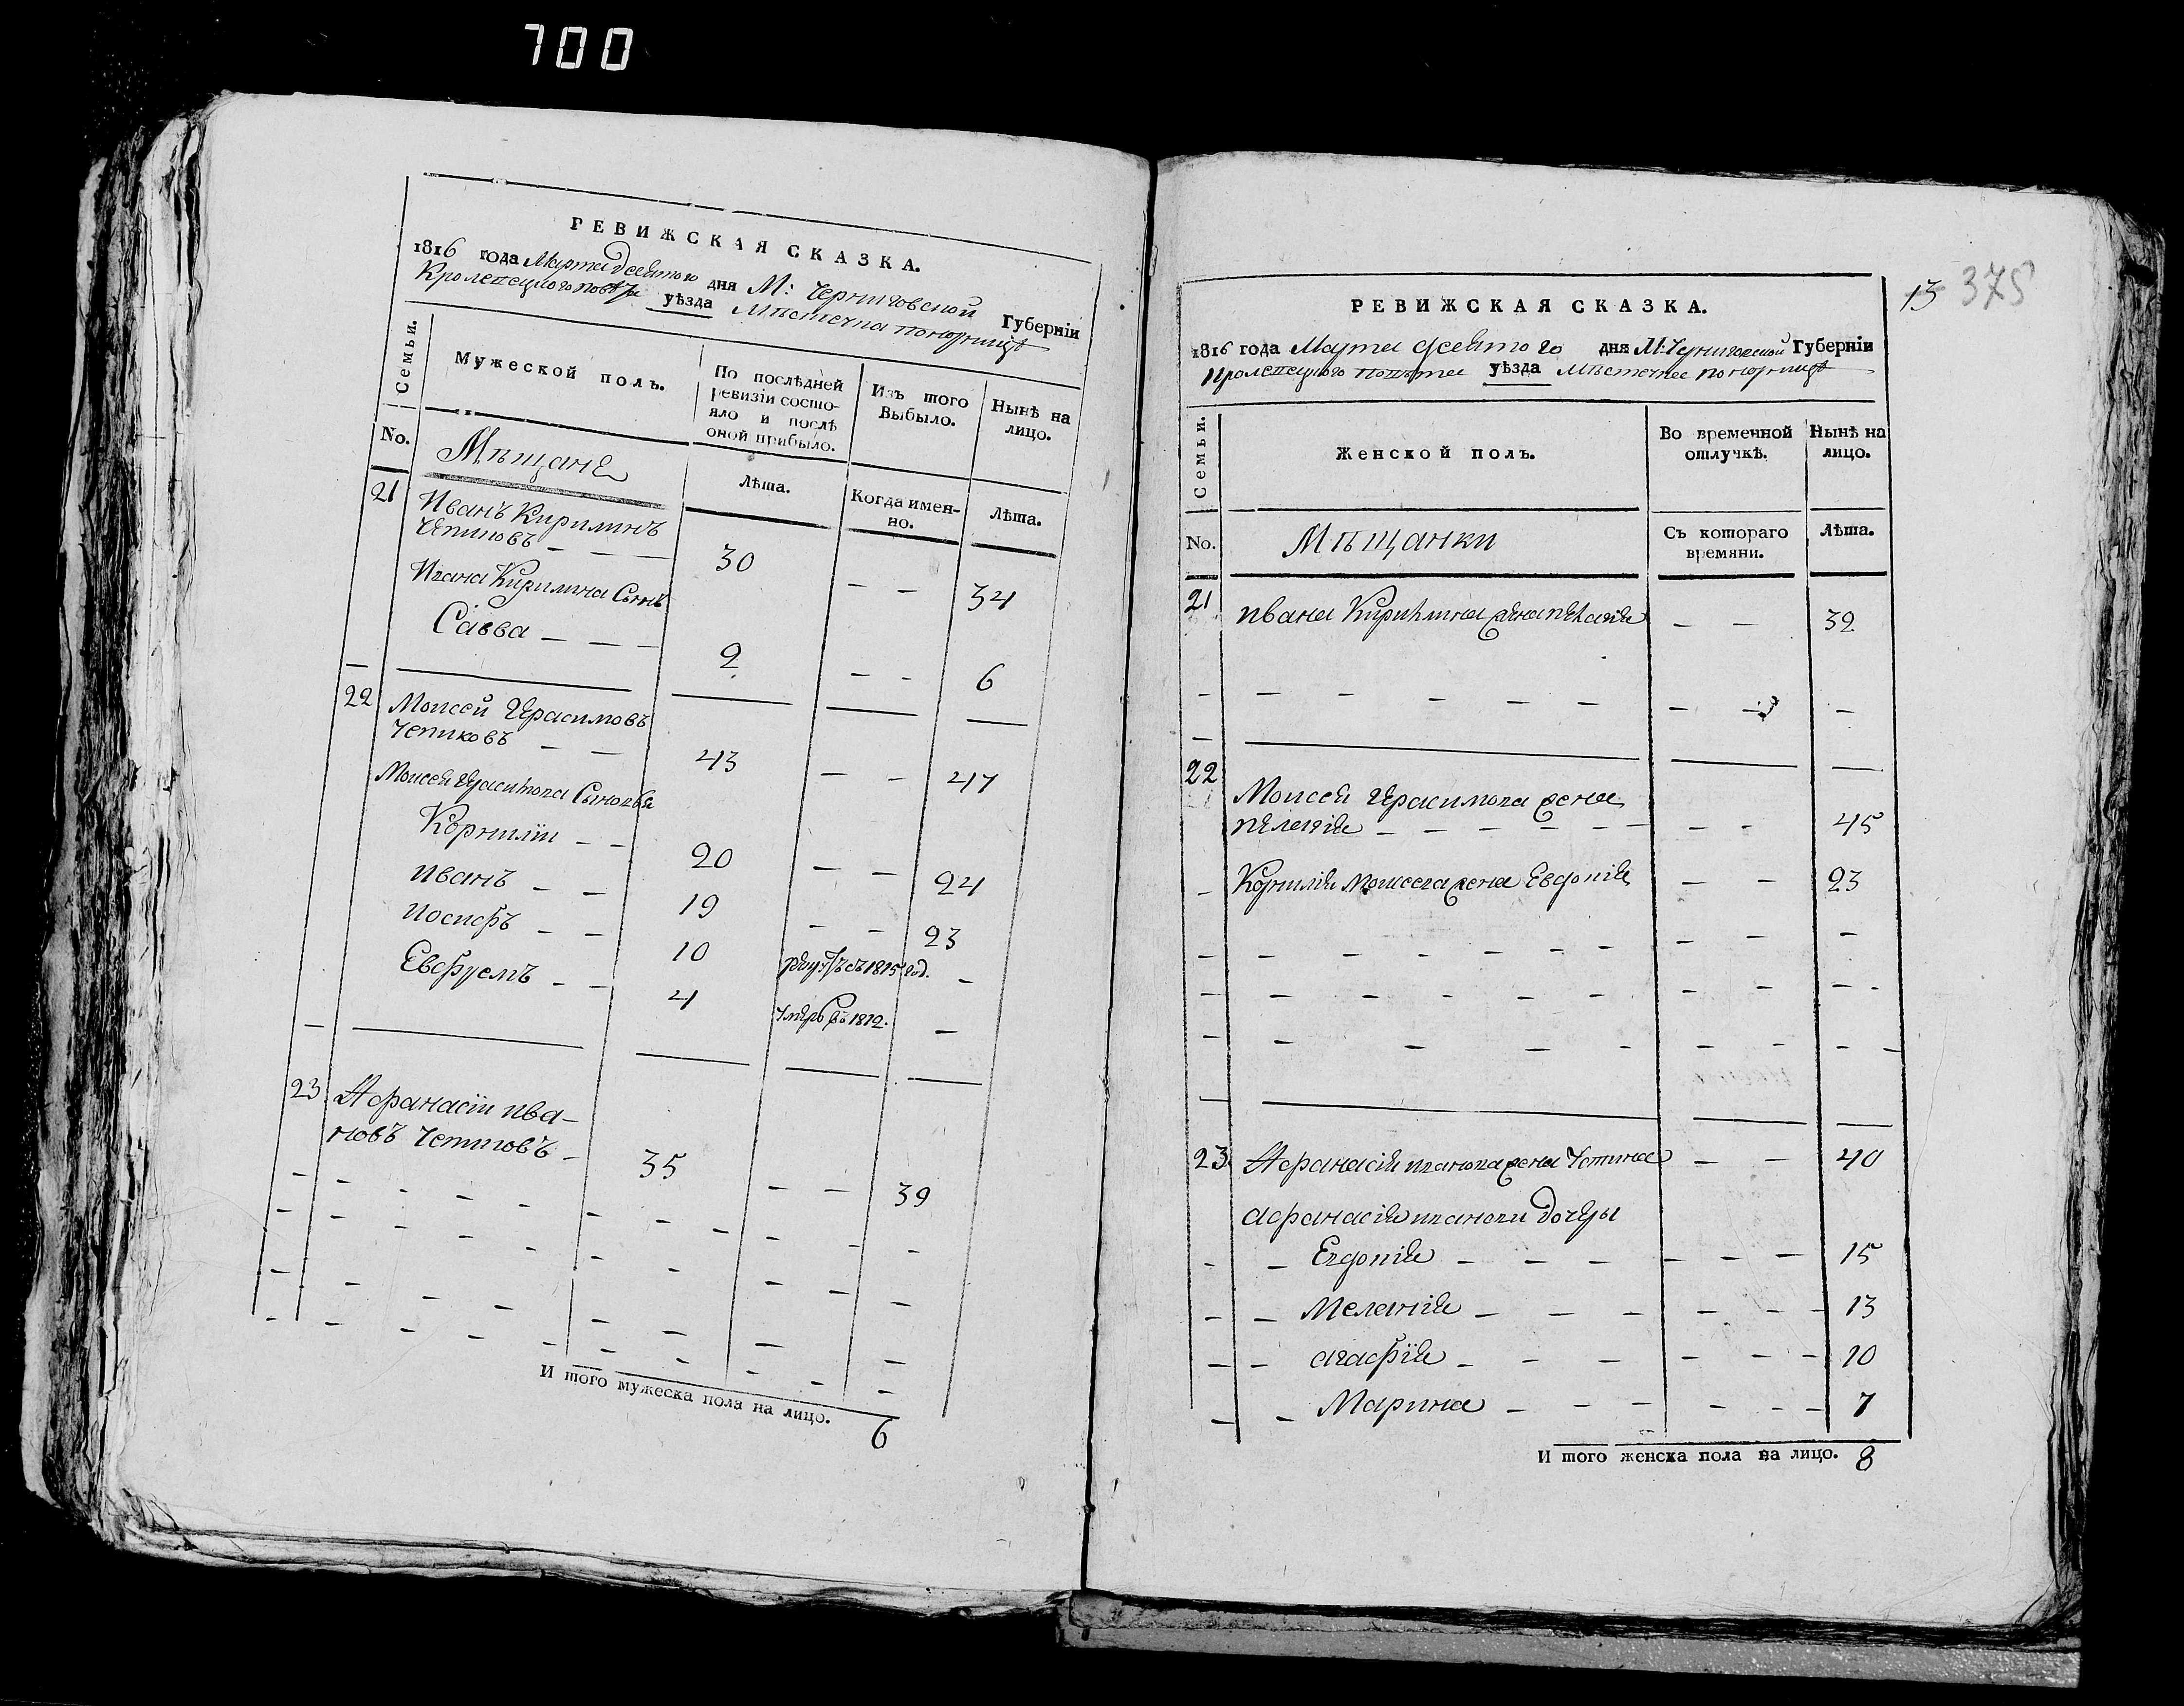 700
РЕВИЖСКАЯ СКАЗКА.
1816 года Марта десятого дня М: Черниговской Губерніи
Кролевецкого повѣта уѣзда Мѣстечка Понорницѣ
Семьи. Мужеской полъ. По послѣдней ревизіи состо- Изъ того Нынѣ на
яло и послѣ Выбыло. лицо.
оной прибыло.
No. Мѣщане Лѣта. Когда имен- Лѣта.
но.
21 Иванъ Кирилинъ
Чепиковъ — — — 30 — — 34
Ивана Кирилина Сынъ
Савва — — — 2 — - 6
22 Моисей Герасимовъ
Чепиковъ — — 43 — — 47
Моисея Герасимова Сыновья
Корнилій — — 20 — — 24
иванъ — — 19 — — 23
иосифъ — — 10 въ 1815 год. —
Евфремъ — — 4 Умеръ въ 1812. —
23 Афанасій ива-
новъ Чепиковъ — 35 — — 39
И того мужеска пола на лицо. 6
13 375
РЕВИЖСКАЯ СКАЗКА.
1816 года Марта десятого дня М: Черниговской Губерніи
Кролевецкого повѣта уѣзда Мѣстечка Понорницѣ
Семьи. Женской полъ. Во временной Нынѣ на
отлучкѣ. лицо.
No. Мѣщанки Съ котораго Лѣта.
времяни.
21 ивана Кирилина жена пелагія — — 32
22 Моисея Герасимова жена
— — — — — — — - 45
— Корнилія Моисеева жена Евдокія — — 23
23 Афанасія иванова жена — — 40
афанасія иванова дочеры
- — Евдокія — — — — — — 15
- — Меланія — — — — - — 13
— — агафія — — — — — — 10
— — Марина — — — — - — 7
И того женска пола на лицо. 8